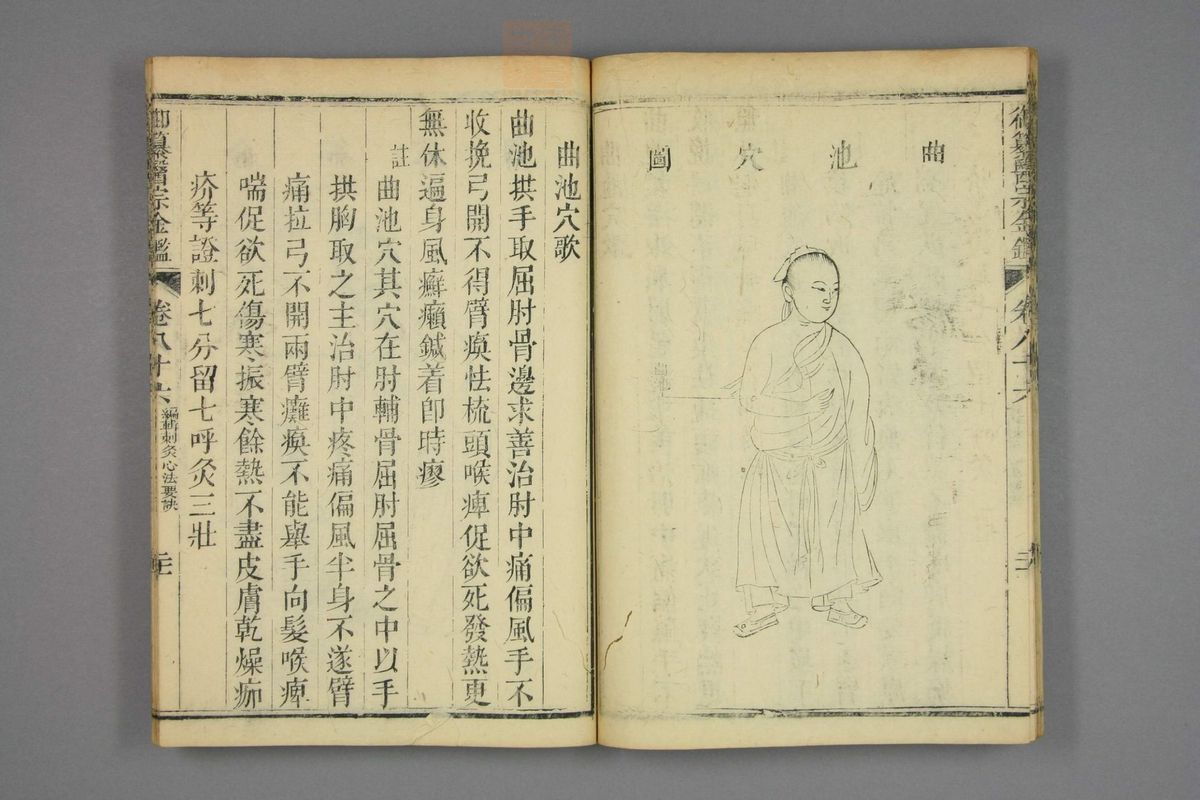 御纂醫宗金鑑
卷八十六
曲池穴圖
曲池穴歌
曲池拱手取屈肘骨邊求善治肘中痛偏風手不
收挽弓開不得臂瘓怯梳頭喉痺促欲死發熱更
無休遍身風癬癩鍼着卽時瘳
註
曲池穴其穴在肘輔骨屈肘屈骨之中以手
拱胸取之主治肘中疼痛偏風半身不遂臂
痛拉弓不開兩臂癱瘓不能舉手向髮喉痺
喘促欲死傷寒振寒餘熱不盡皮膚乾燥痂
疥等證刺七分留七呼灸三壯
御纂醫宗金鑑
卷八十六
編輯刺灸心法要訣